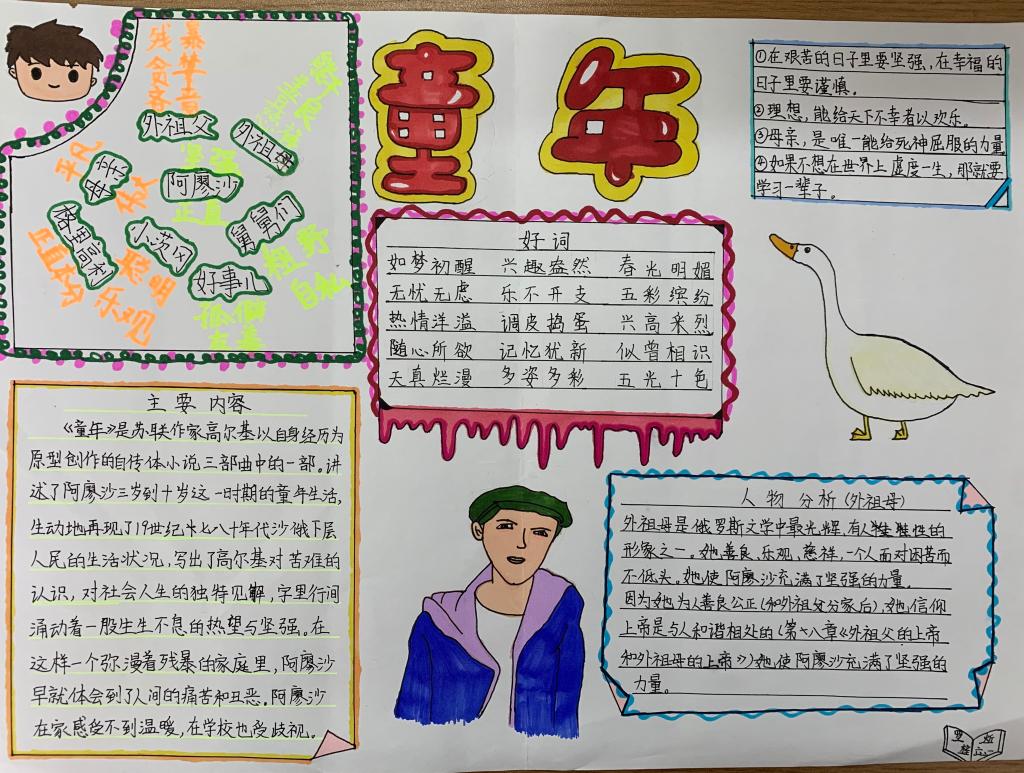 童年
残暴
贪婪
吝啬
外祖父
外祖母
坚强
阿廖沙
正直
平凡
舅舅们
粗野
自私
小茨冈
聪明
乐观
好事儿
孤僻
正直
①在艰苦的日子里要坚强,在幸福的
日子里要谨慎。
②理想,能给天下不幸者以欢乐。
③母亲,是唯一能给死神屈服的力量
④如果不想在世界上虚度一生,那就要
学习一辈子。
好词
如梦初醒 兴趣盎然 春光明媚
无忧无虑 乐不开支 五彩缤纷
热情洋溢 调皮捣蛋 兴高采烈
随心所欲 记忆犹新 似曾相识
天真烂漫 多姿多彩 五光十色
主要内容
《童年》是苏联作家高尔基以自身经历为
原型创作的自传体小说三部曲中的一部。讲
述了阿廖沙三岁到十岁这一时期的童年生活,
生动地再现了19世纪七八十年代沙俄下层
人民的生活状况,写出了高尔基对苦难的
认识,对社会人生的独特见解,字里行间
涌动着一股生生不息的热望与坚强。在
这样一个弥漫着残暴的家庭里,阿廖沙
早就体会到了人间的痛苦和丑恶。阿廖沙
在家感受不到温暖,在学校也受歧视。
人物分析(外祖母)
外祖母是俄罗斯文学中最光辉、有人牲牲性的
形象之一。她善良、乐观、慈祥,一个人面对困苦而
不低头。她使阿廖沙充满了坚强的力量。
因为她为人善良公正(和外祖父分家后),她信仰
上帝是与人和谐相处的(第七八章《外祖父的上帝
和外祖母的上帝》)她使阿廖沙充满了坚强的
力量。